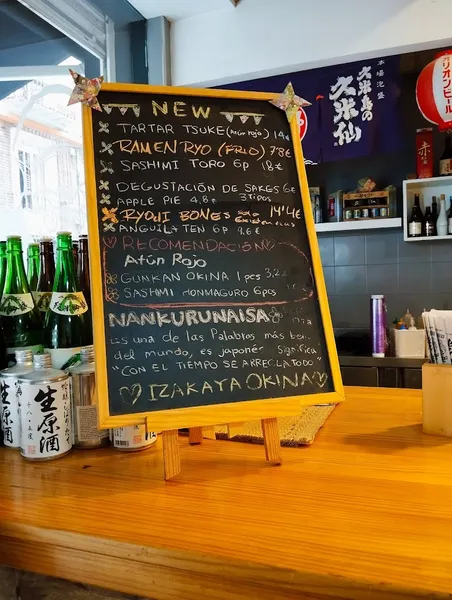 NEW
TARTAR TSUKE (Atún Rojo) 14
RAMEN RYO (FRIO) 7'8€
SASHIMI TORO 6p 18€
DEGUSTACIÓN DE SAKES 6€
3 TIPOS
APPLE PIE 4.8€
RYOJI BONES 14'4€
ANGUILA TEN 6p 9.6€
RECOMENDACIÓN
Atún Rojo
GUNKAN OKINA 1pcs 3,22
SASHIMI HONMAGURO 6pcs
NANKURUNAISA
es una de las Palabras más be
del mundo, es japonés significa
"CON EL TIEMPO SE ARREGLA TODO"
IZAKAYA OKINA
本場泡盛
久米島の
久米仙
オリオンビール
赤
生原酒
生原酒